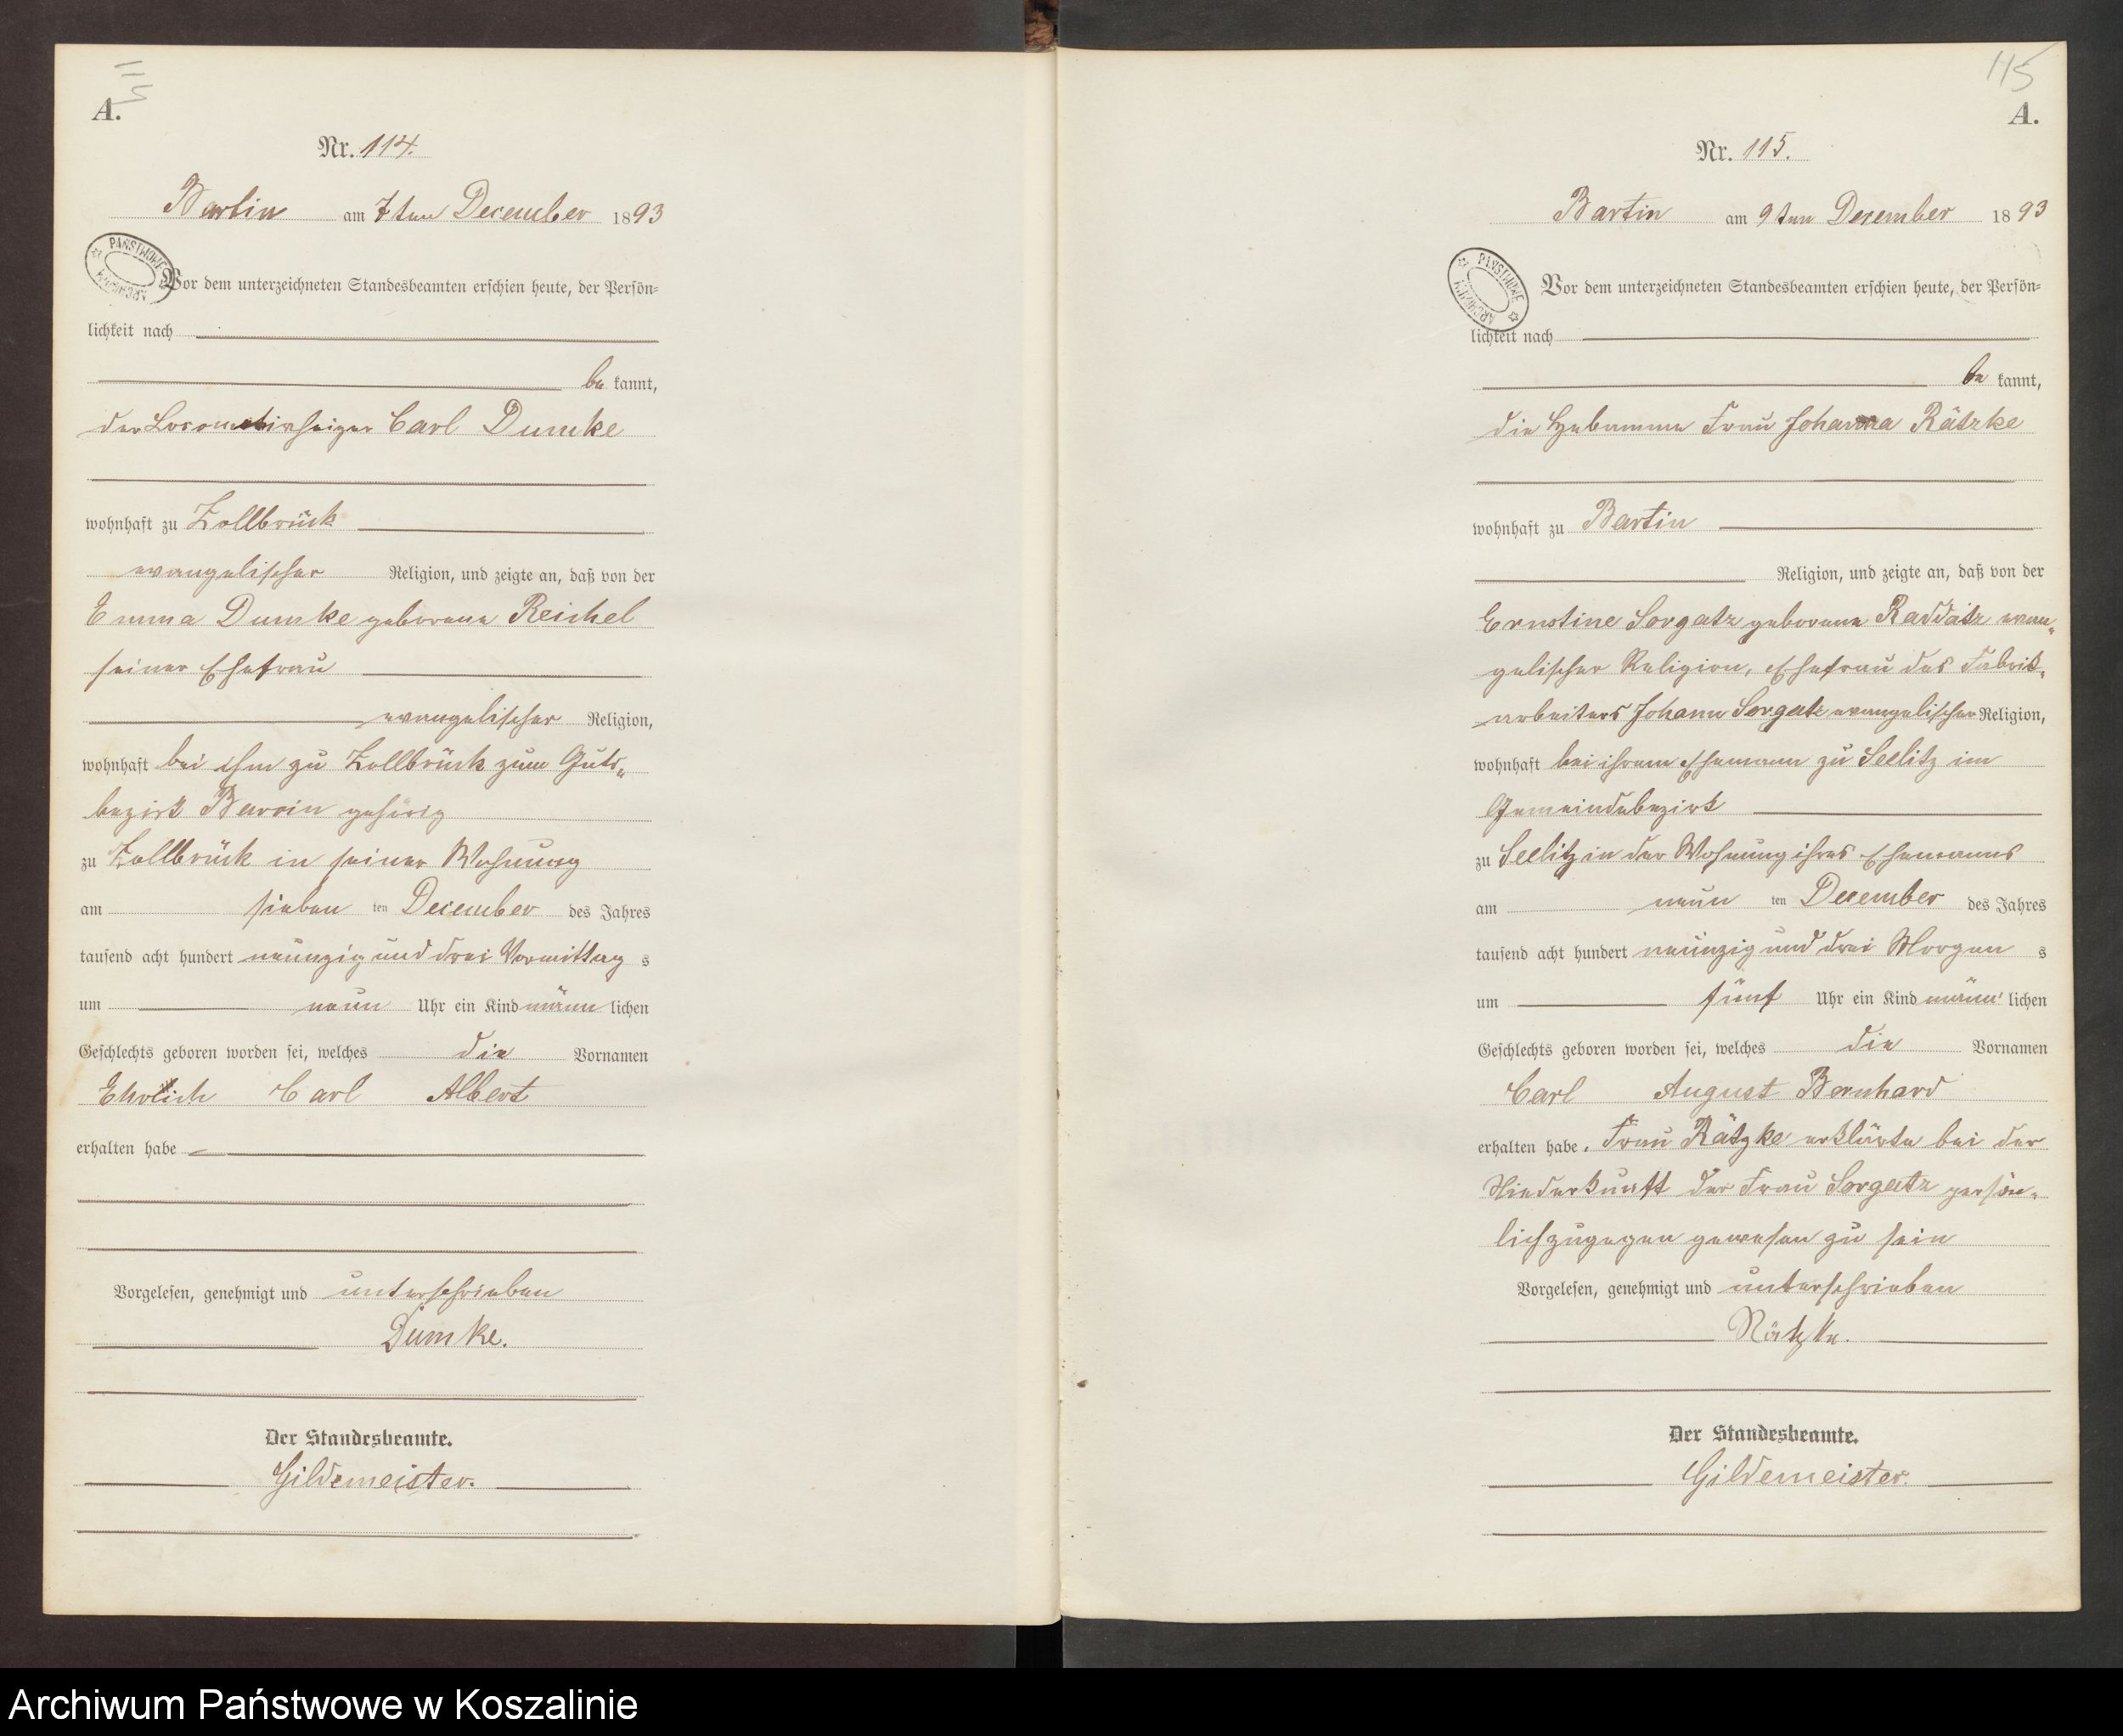 115
A.
Nr. 114.
Bartin am 7ten December 1893
PAŃSTWOWE ARCHIWUM
Vor dem unterzeichneten Standesbeamten erschien heute, der Persön=
lichkeit nach
be kannt,
der Locomotivheizer Carl Dumke
wohnhaft zu Zollbrück
evangelischer Religion, und zeigte an, daß von der
Emma Dumke geborene Reichel
seiner Ehefrau
evangelischer Religion,
wohnhaft bei ihm zu Zollbrück zum Guts„
bezirk Barvin gehörig
zu Zollbrück in seiner Wohnung
am sieben ten December des Jahres
tausend acht hundert neunzig und drei Vormittag s
um neun Uhr ein Kind männ lichen
Geschlechts geboren worden sei, welches die Vornamen
Carl Albert
erhalten habe
Vorgelesen, genehmigt und unterschrieben
Dumke.
Der Standesbeamte.
Gildemeister.
115
A.
Nr. 115.
Bartin am 9ten Dezember 1893
PAŃSTWOWE ARCHIWUM
Vor dem unterzeichneten Standesbeamten erschien heute, der Persön=
lichkeit nach
be kannt,
die Hebamme Frau Johanna Rätzke
wohnhaft zu Bartin
Religion, und zeigte an, daß von der
Ernstine Sorgatz geborene Raddatz evan„
gelischer Religion, Ehefrau des Fabrik„
arbeiters Johann Sorgatz evangelischer Religion,
wohnhaft bei ihrem Ehemann zu Seelitz im
Gemeindebezirk
zu Seelitz in der Wohnung ihres Ehemanns
am neun ten December des Jahres
tausend acht hundert neunzig und drei Morgen s
um fünf Uhr ein Kind männ lichen
Geschlechts geboren worden sei, welches die Vornamen
Carl August Bernhard
erhalten habe. Frau Rätzke erklärte bei der
Niederkunft der Frau Sorgatz persön„
lich zugegen gewesen zu sein
Vorgelesen, genehmigt und unterschrieben
Rätzke.
Der Standesbeamte.
Gildemeister.
Archiwum Państwowe w Koszalinie